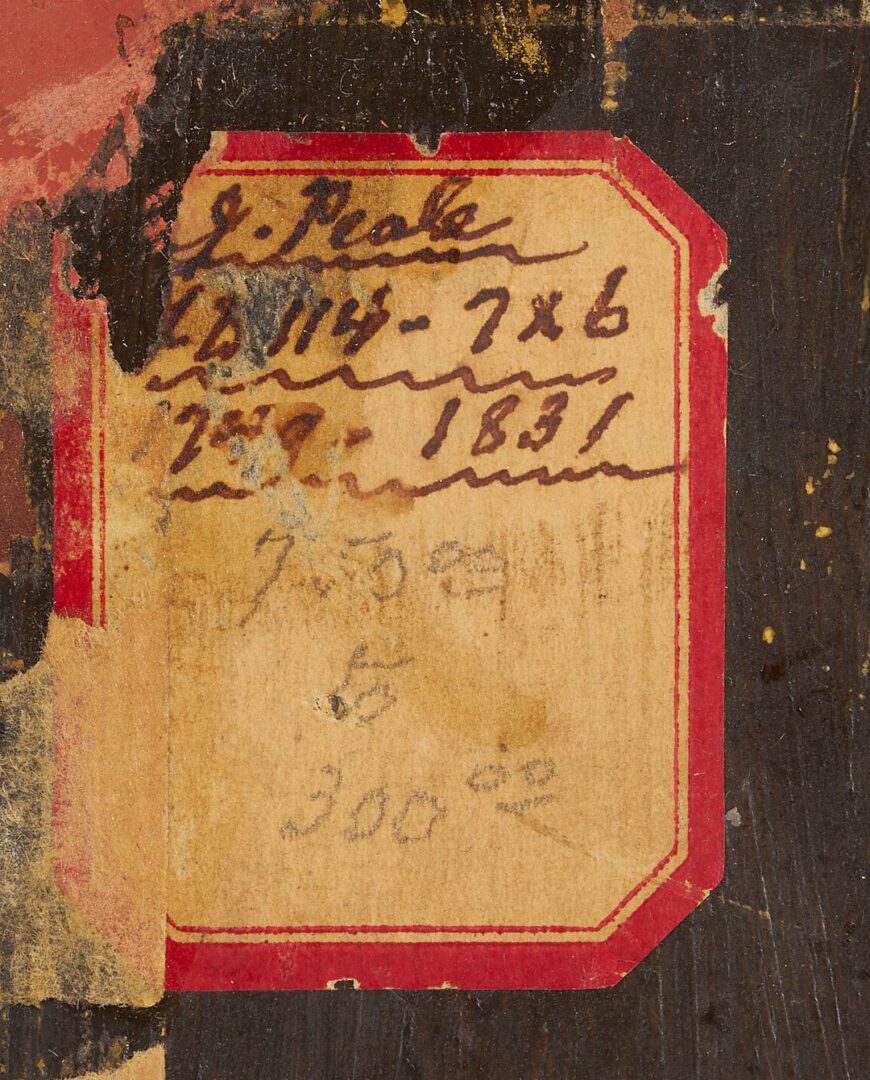 J. Peale
114 - 7 x 6
- 1831
750 00
50
300 00